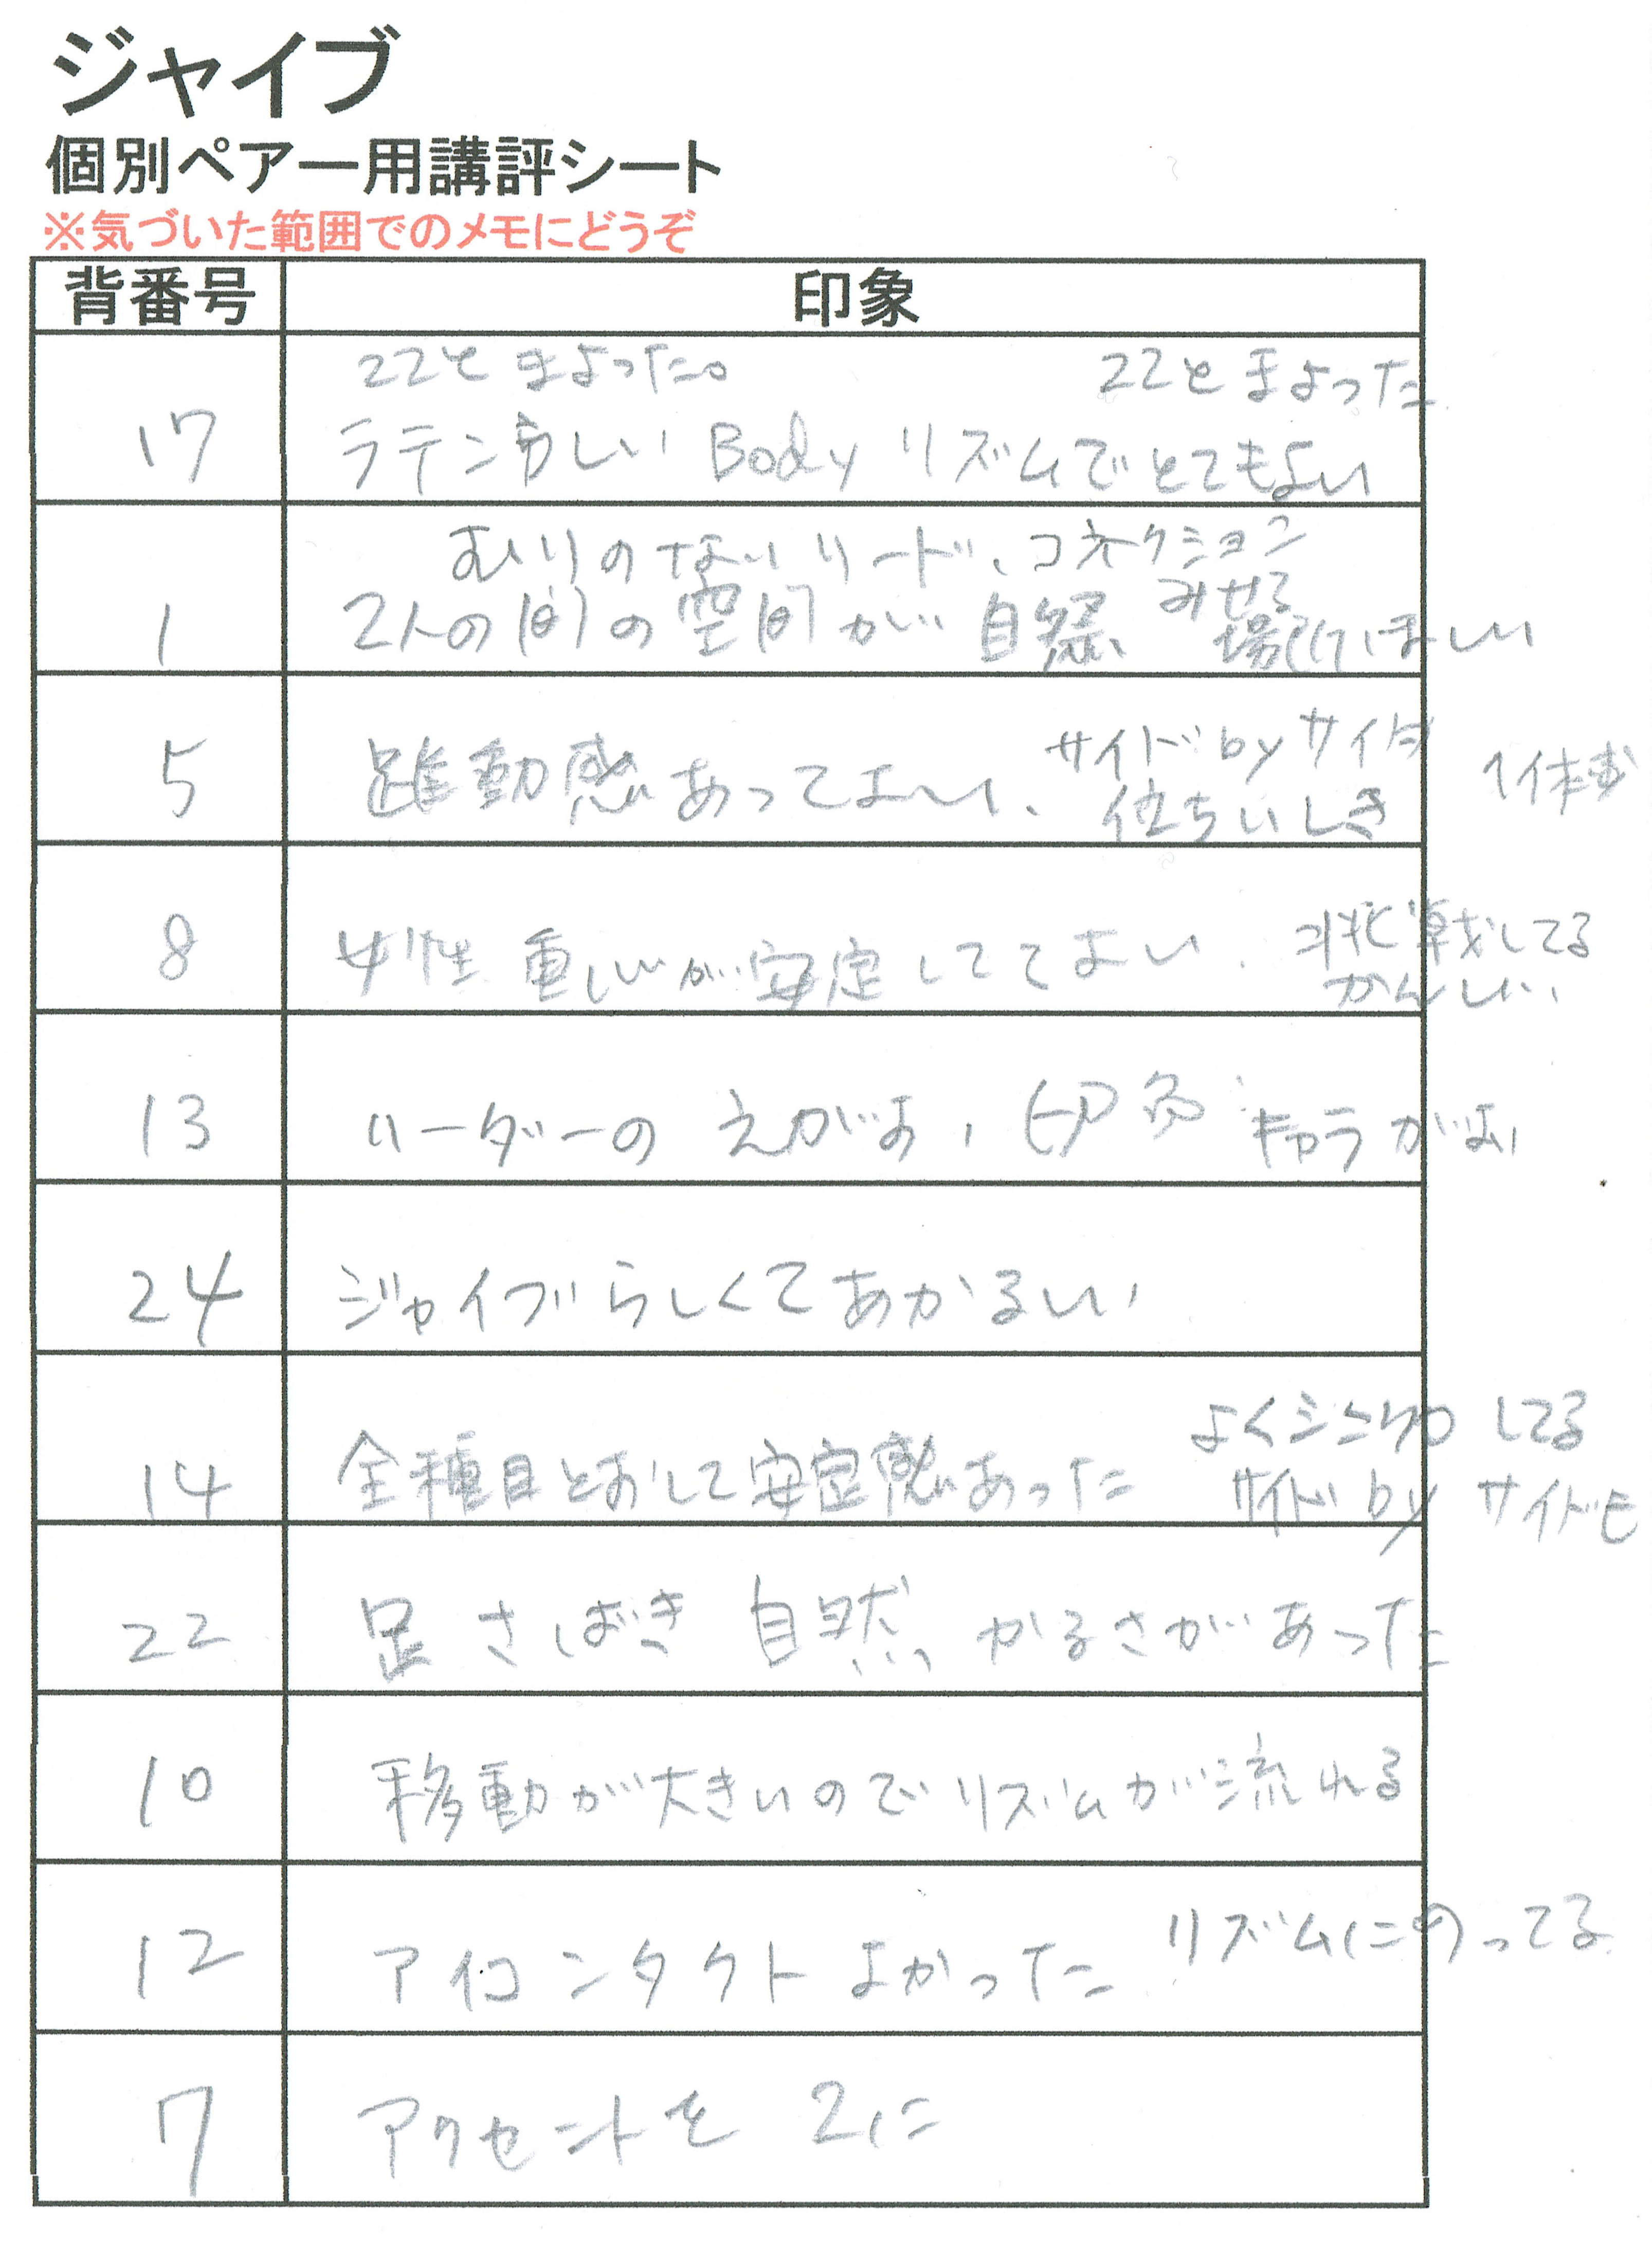 ジャイブ
個別ペアー用講評シート
※気づいた範囲でのメモにどうぞ
背番号 印象
22とまよった。 22とまよった
17 ラテンらしい Body リズムでとてもよい
むりのないリード、コネクション
1 2人の間の空間が自然、みせる場がほしい
5 躍動感あってよい、サイドbyサイド
位ちいしき 1体感
8 女性 重心が安定しててよい、挑戦してる
かんじ
13 リーダーのえがお、印象 キャラがよい
24 ジャイブらしくてあかるい
よくシンクロしてる
14 全種目とおして安定感あった サイドbyサイドも
22 足さばき 自然、かるさがあった
10 移動が大きいのでリズムが流れる
12 アイコンタクトよかった リズムにのってる
7 アクセントを2に